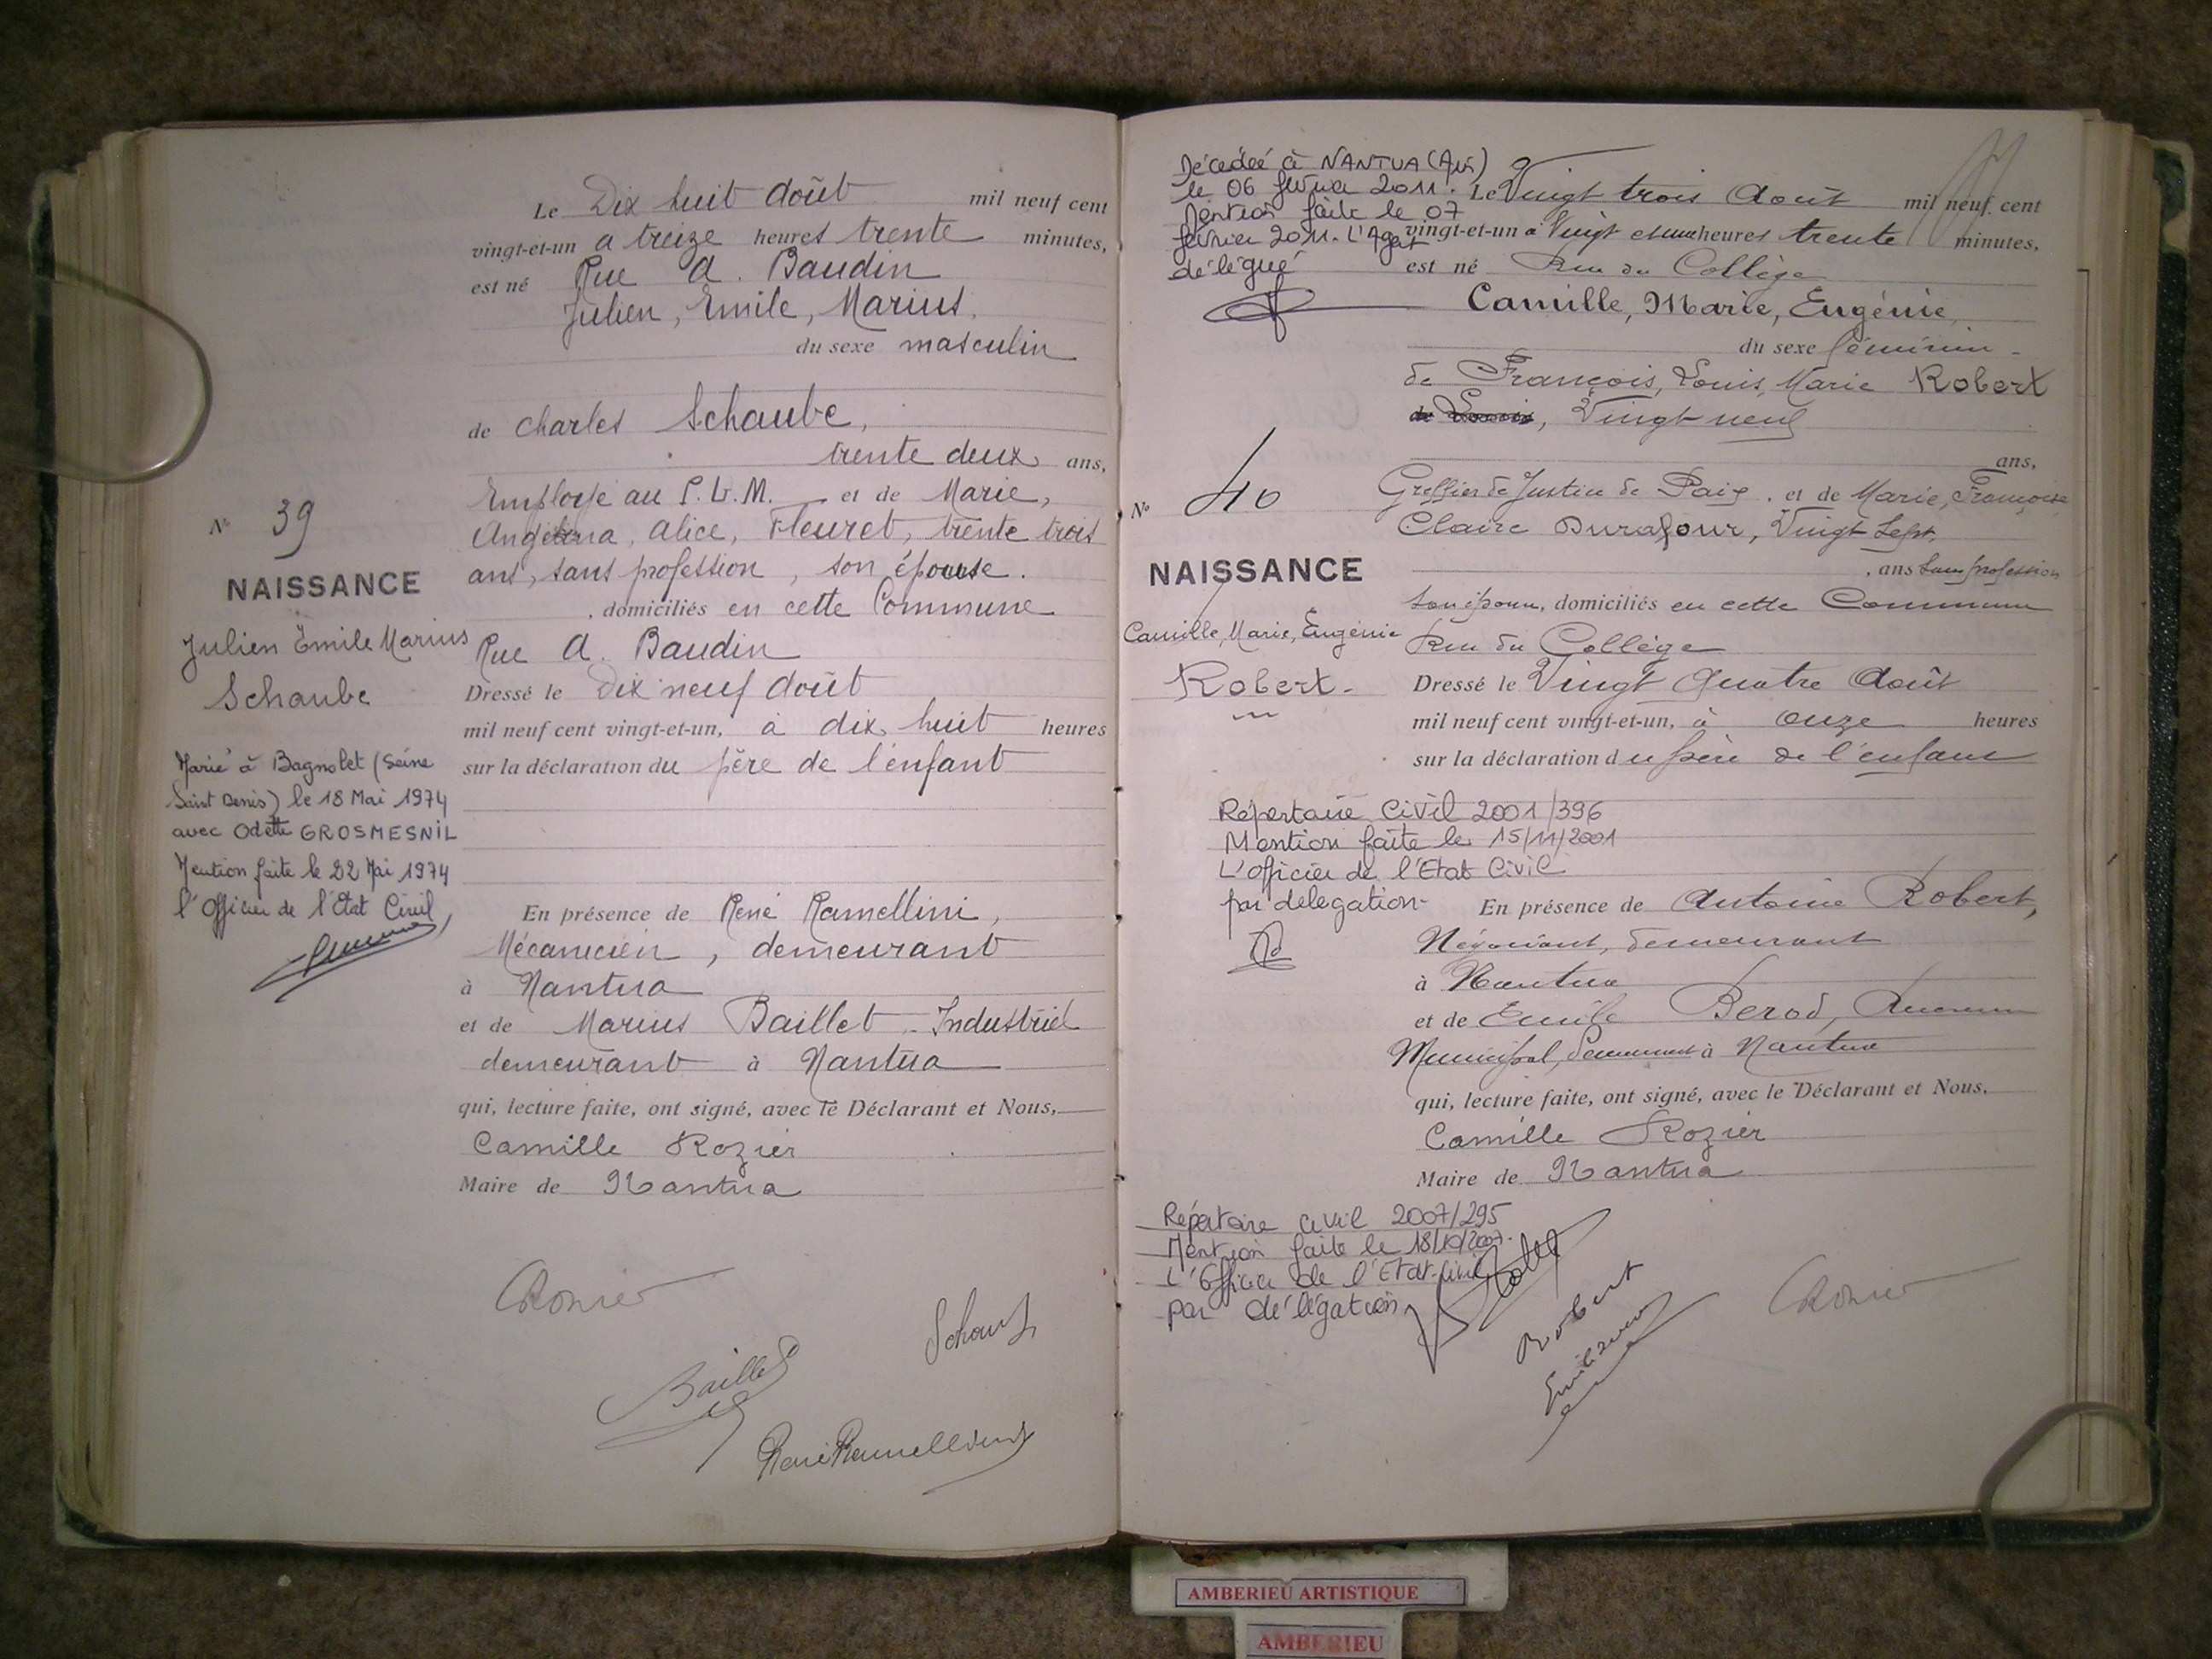 Le Dix huit Août mil neuf cent
vingt-et-un à treize heures trente minutes,
est né Rue A. Baudin
Julien, Emile, Marius,
du sexe masculin
de Charles Schaube,
trente deux ans,
Employé au P.L.M. et de Marie,
Angelina, Alice, Fleuret, trente trois
ans, sans profession, son épouse.
, domiciliés en cette Commune
Rue A. Baudin
Dressé le Dix neuf Août
mil neuf cent vingt-et-un, à dix huit heures
sur la déclaration du père de l'enfant
En présence de René Ramellini,
Mécanicien, demeurant
à Nantua
et de Marius Baillet Industriel
demeurant à Nantua
qui, lecture faite, ont signé, avec le Déclarant et Nous,
Camille Rozier
Maire de Nantua
CRozier
Schaub
Baillet
René Ramellini
N° 39
NAISSANCE
Julien Emile Marius
Schaube
Marié à Bagnolet (Seine
Saint Denis) le 18 Mai 1974
avec Odette GROSMESNIL
Mention faite le 22 Mai 1974
l'Officier de l'Etat Civil,
Décédée à NANTUA (Ain)
le 06 février 2011.
Mention faite le 07
février 2011. L'Agent
délégué
N° 40
NAISSANCE
Camille, Marie, Eugénie
Robert
Le Vingt trois Août mil neuf cent
vingt-et-un à Vingt et une heures trente minutes,
est né Rue du Collège
Camille, Marie, Eugénie,
du sexe féminin
de François, Louis, Marie Robert
, Vingt neuf
ans,
Greffier de Justice de Paix, et de Marie, Françoise
Claire Durafour, Vingt Sept,
, ans Sans profession
son épouse, domiciliés en cette Commune
Rue du Collège
Dressé le Vingt Quatre Août
mil neuf cent vingt-et-un, à onze heures
sur la déclaration du père de l'enfant
Répertoire Civil 2001/396
Mention faite le 15/11/2001
L'officier de l'Etat Civil
par délégation
En présence de Antoine Robert,
Négociant, demeurant
à Nantua
et de Emile Berod,
Municipal, demeurant à Nantua
qui, lecture faite, ont signé, avec le Déclarant et Nous,
Camille Rozier
Maire de Nantua
Répertoire civil 2007/295
Mention faite le 18/10/2007.
L'Officier de l'Etat-Civil
par délégation
Robert
CRozier
AMBERIEU ARTISTIQUE
AMBERIEU